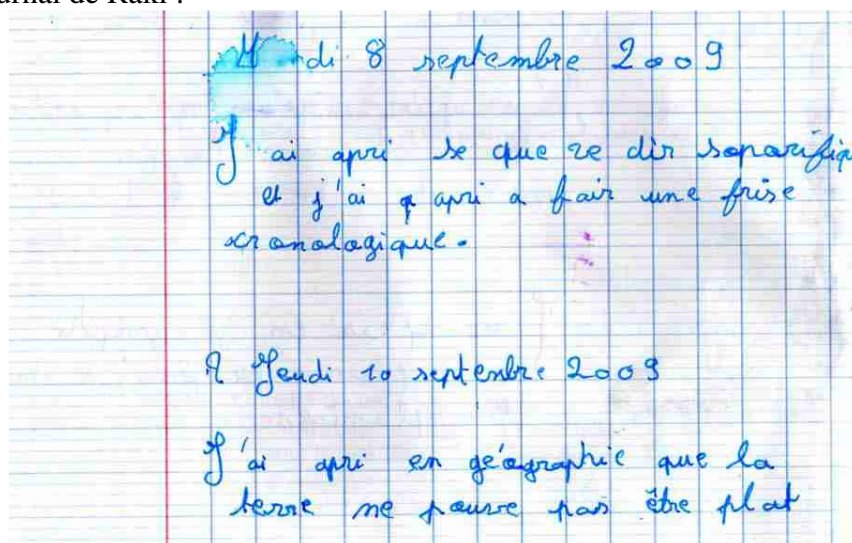 urnal de Raki :
di 8 septembre 2009
J ai apri se que ze dir soparifiq
et j'ai apri a fair une frise
cronologique.
Jeudi 10 septenbre 2009
J'ai apri en géographie que la
terre ne pouvre pas être plat